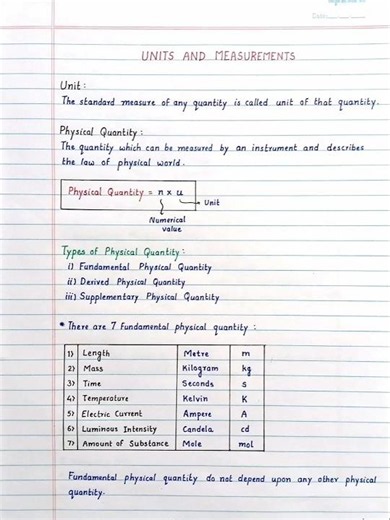 Date:
UNITS AND MEASUREMENTS
Unit :
The standard measure of any quantity is called unit of that quantity.
Physical Quantity :
The quantity which can be measured by an instrument and describes
the law of physical world.
Physical Quantity = n x u
Unit
Numerical
value
Types of Physical Quantity :
i) Fundamental Physical Quantity
ii) Derived Physical Quantity
iii) Supplementary Physical Quantity
• There are 7 fundamental physical quantity :
1) Length Metre m
2) Mass Kilogram kg
3) Time Seconds s
4) Temperature Kelvin K
5) Electric Current Ampere A
6) Luminous Intensity Candela cd
7) Amount of Substance Mole mol
Fundamental physical quantity do not depend upon any other physical
quantity.